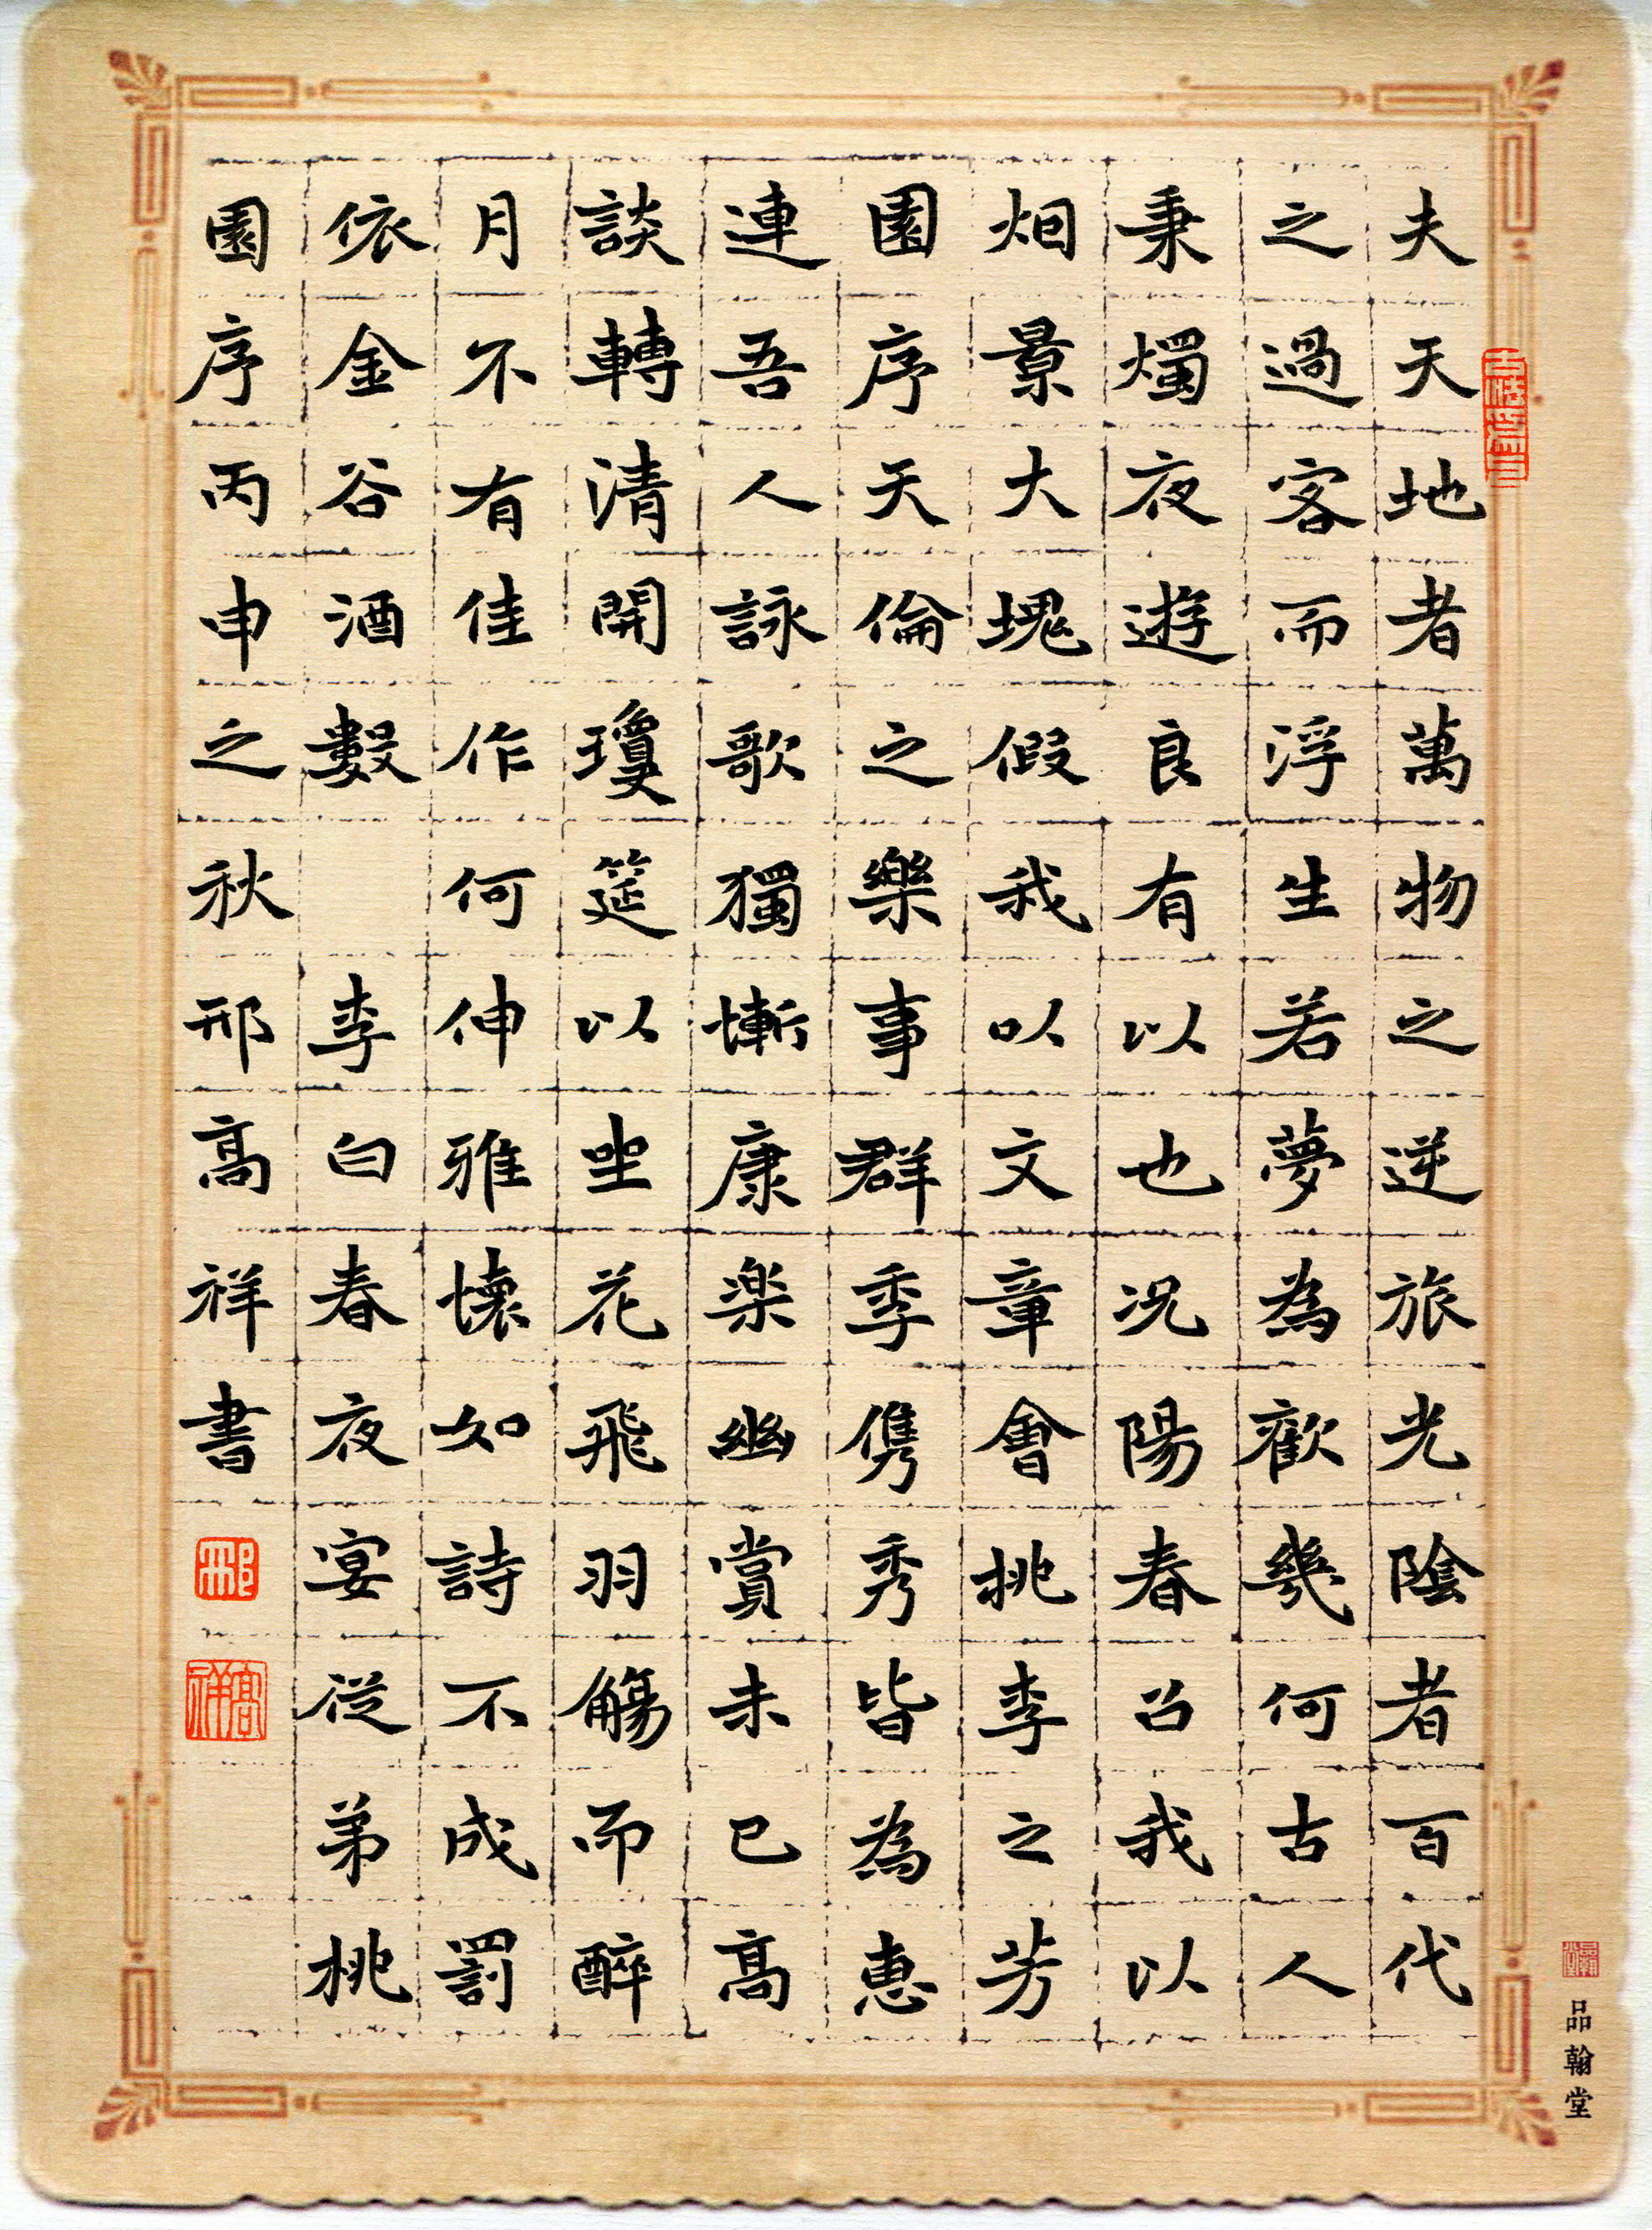 夫天地者萬物之逆旅光陰者百代
之過客而浮生若夢為歡幾何古人
秉燭夜遊良有以也况陽春召我以
烟景大塊假我以文章會桃李之芳
園序天倫之樂事群季儁秀皆為惠
連吾人詠歌獨慚康楽幽賞未已高
談轉清開瓊筵以坐花飛羽觴而醉
月不有佳作何伸雅懷如詩不成罰
依金谷酒數 李白春夜宴從弟桃
園序丙申之秋邢高祥書
邢
高祥
品翰堂